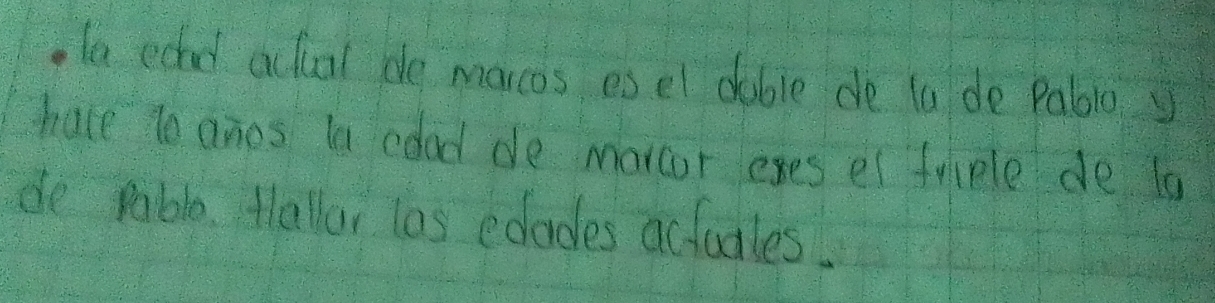 • la edad actual de marcos es el doble de la de Pablo y
hace 10 años la edad de marcor eres el triple de la
de Pablo. Hallar las edades actuales.